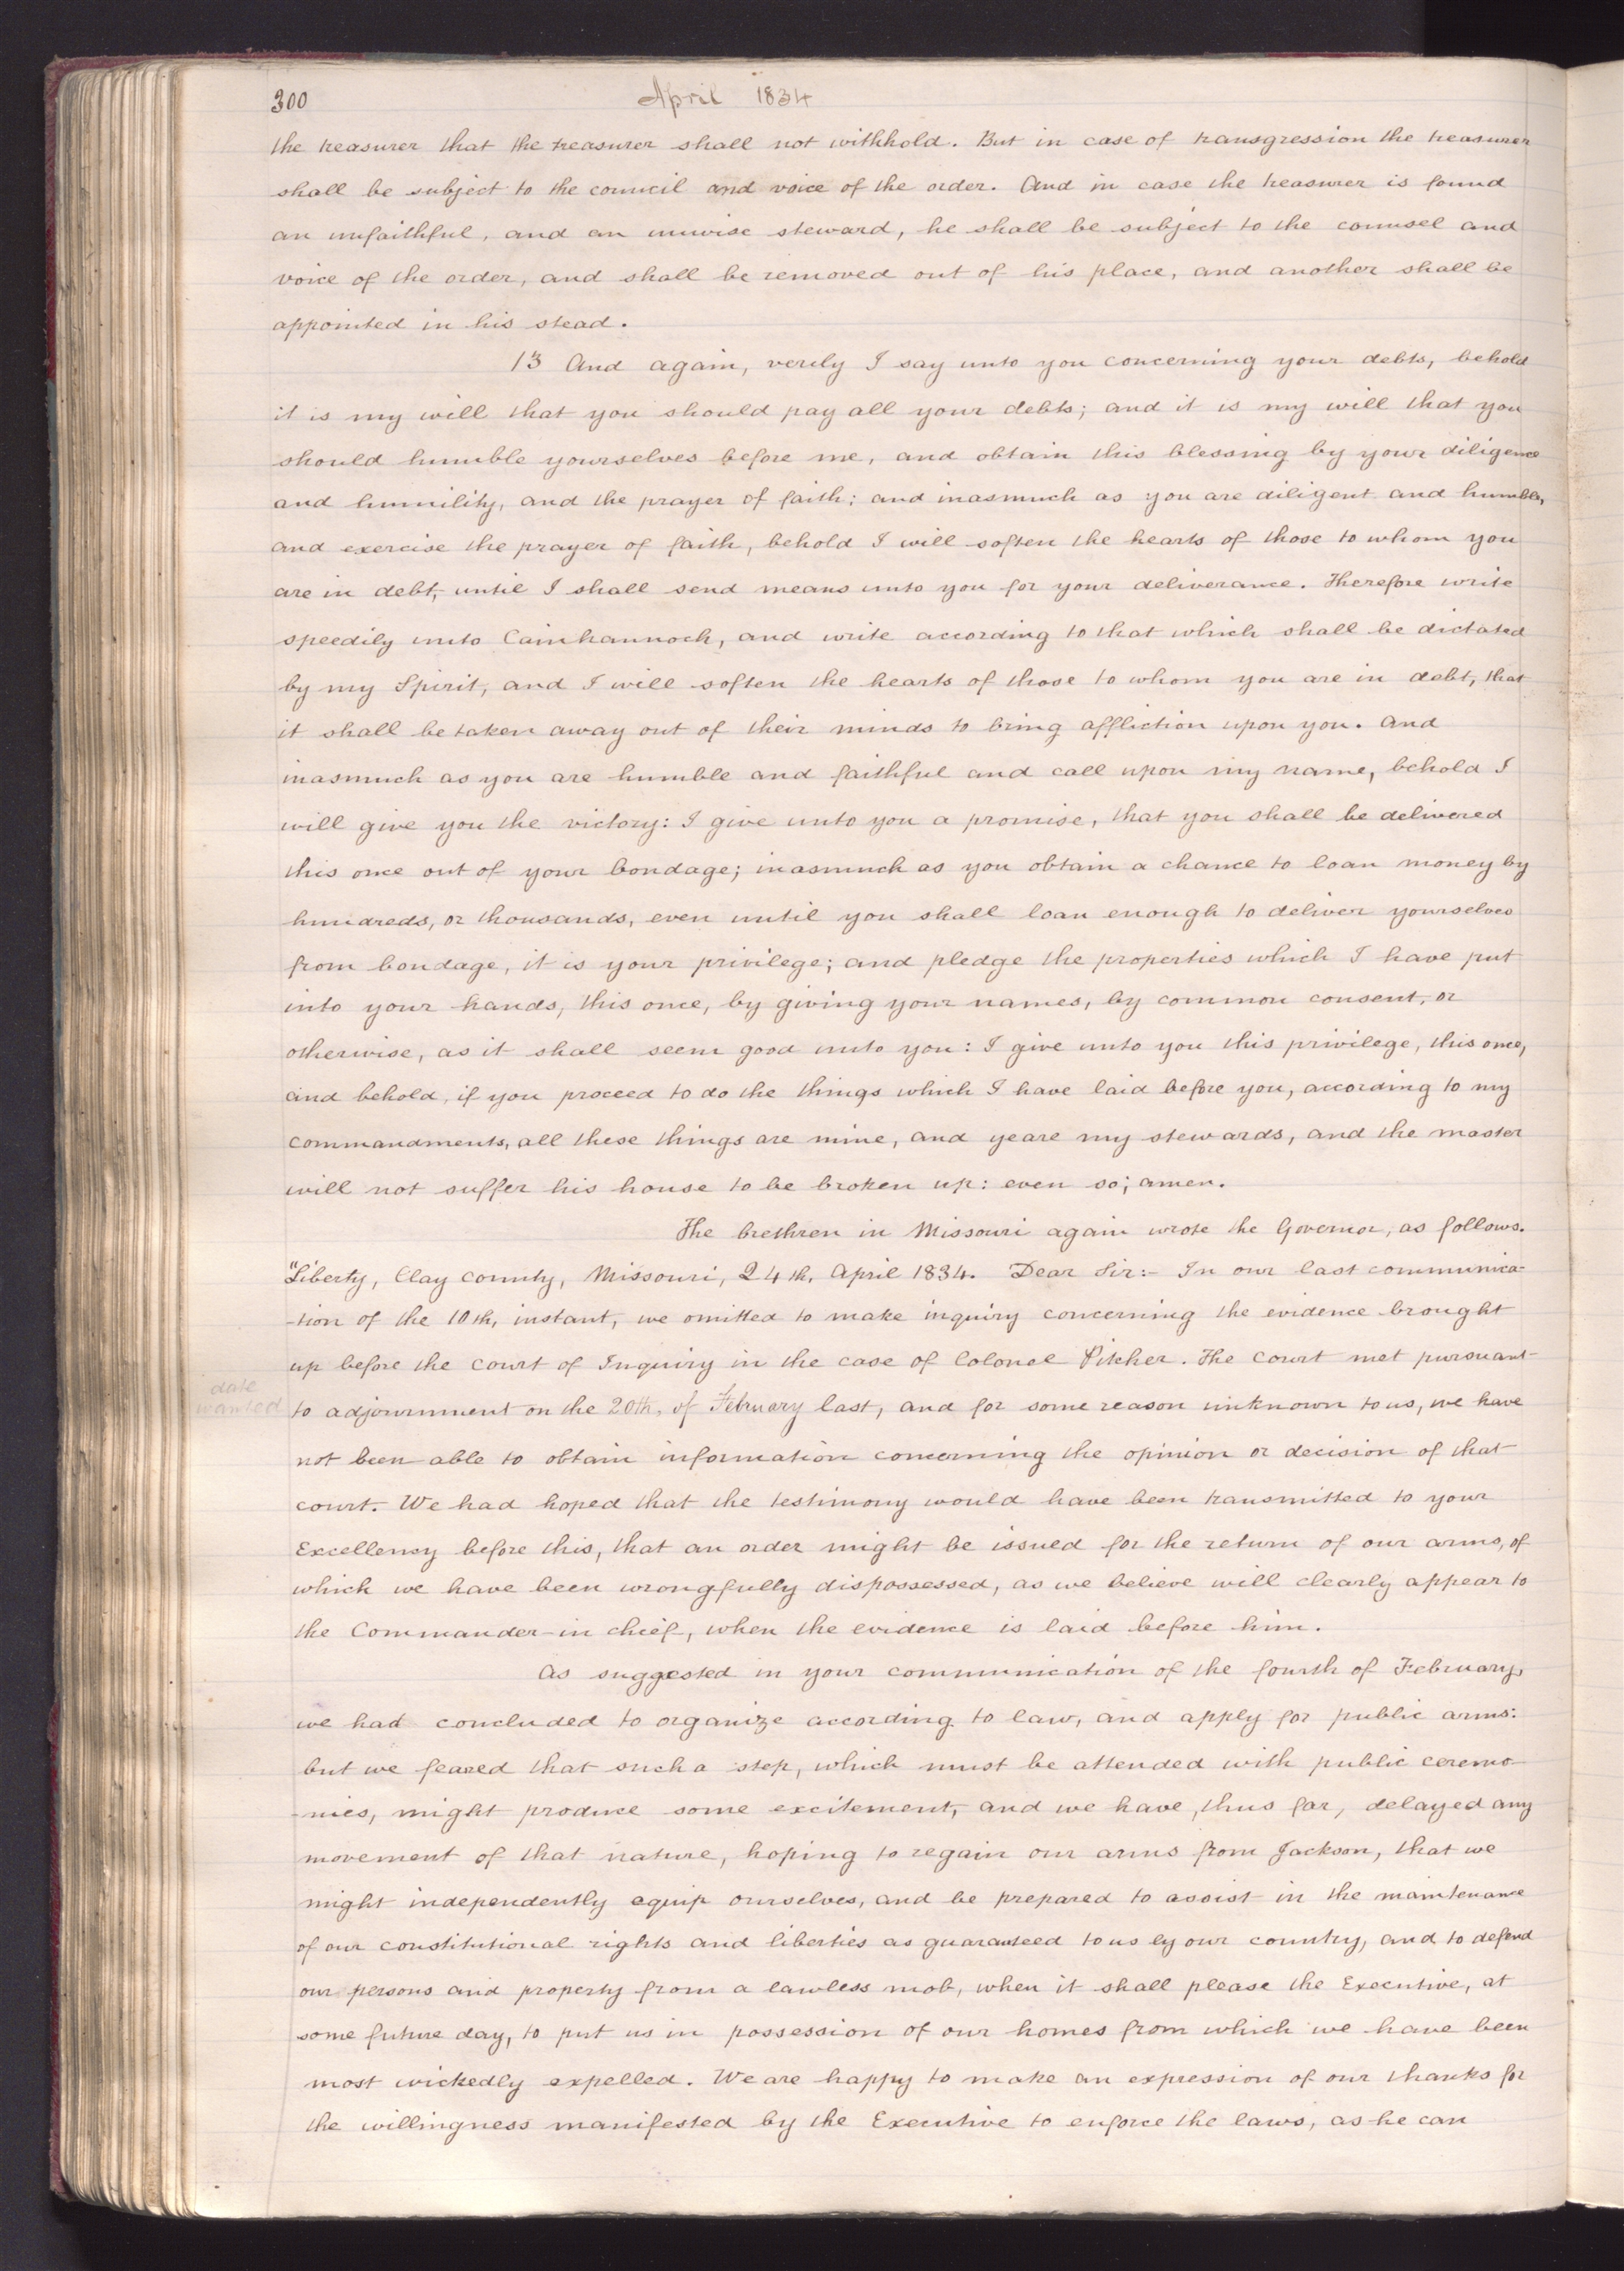 300
April 1834
the treasurer that the treasurer shall not withhold. But in case of transgression the treasurer
shall be subject to the council and voice of the order. And in case the treasurer is found
an unfaithful, and an unwise steward, he shall be subject to the counsel and
voice of the order, and shall be removed out of his place, and another shall be
appointed in his stead.
13 And again, verily I say unto you concerning your debts, behold
it is my will that you should pay all your debts; and it is my will that you
should humble yourselves before me, and obtain this blessing by your diligence
and humility, and the prayer of faith; and inasmuch as you are diligent and humble,
and exercise the prayer of faith, behold I will soften the hearts of those to whom you
are in debt, until I shall send means unto you for your deliverance. Therefore write
speedily unto Cainhannoch, and write according to that which shall be dictated
by my Spirit, and I will soften the hearts of those to whom you are in debt, that
it shall be taken away out of their minds to bring affliction upon you. And
inasmuch as you are humble and faithful and call upon my name, behold I
will give you the victory: I give unto you a promise, that you shall be delivered
this once out of your bondage; inasmuch as you obtain a chance to loan money by
hundreds, or thousands, even until you shall loan enough to deliver yourselves
from bondage, it is your privilege; and pledge the properties which I have put
into your hands, this once, by giving your names, by common consent, or
otherwise, as it shall seem good unto you: I give unto you this privilege, this once,
and behold, if you proceed to do the things which I have laid before you, according to my
commandments, all these things are mine, and ye are my stewards, and the master
will not suffer his house to be broken up: even so; amen.
The brethren in Missouri again wrote the Governor, as follows.
"Liberty, Clay county, Missouri, 24th, April 1834. Dear Sir:- In our last communica-
-tion of the 10th, instant, we omitted to make inquiry concerning the evidence brought
up before the court of Inquiry in the case of Colonel Pitcher. The court met pursuant
date
wanted
to adjournment on the 20th, of February last, and for some reason unknown to us, we have
not been able to obtain information concerning the opinion or decision of that
court. We had hoped that the testimony would have been transmitted to your
Excellency before this, that an order might be issued for the return of our arms, of
which we have been wrongfully dispossessed, as we believe will clearly appear to
the Commander-in chief, when the evidence is laid before him.
As suggested in your communication of the fourth of February,
we had concluded to organize according to law, and apply for public arms:
but we feared that such a step, which must be attended with public ceremo-
-nies, might produce some excitement, and we have, thus far, delayed any
movement of that nature, hoping to regain our arms from Jackson, that we
might independently equip ourselves, and be prepared to assist in the maintenance
of our constitutional rights and liberties as guaranteed to us by our country, and to defend
our persons and property from a lawless mob, when it shall please the Executive, at
some future day, to put us in possession of our homes from which we have been
most wickedly expelled. We are happy to make an expression of our thanks for
the willingness manifested by the Executive to enforce the laws, as he can